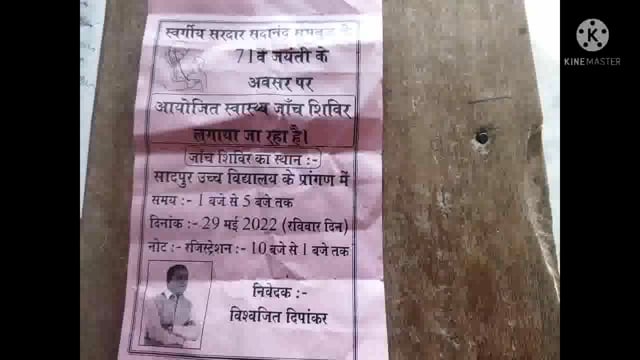 स्वर्गीय सरदार सदानंद
71वें जयंती के
अवसर पर
आयोजित स्वास्थ्य जाँच शिविर
लगाया जा रहा है।
जाँच शिविर का स्थान :-
सादपुर उच्च विद्यालय के प्रांगण में
समय : - 1 बजे से 5 बजे तक
दिनांक : - 29 मई 2022 (रविवार दिन)
नोट : - रजिस्ट्रेशन : - 10 बजे से 1 बजे तक
निवेदक : -
विश्वजित दिपांकर
KINEMASTER